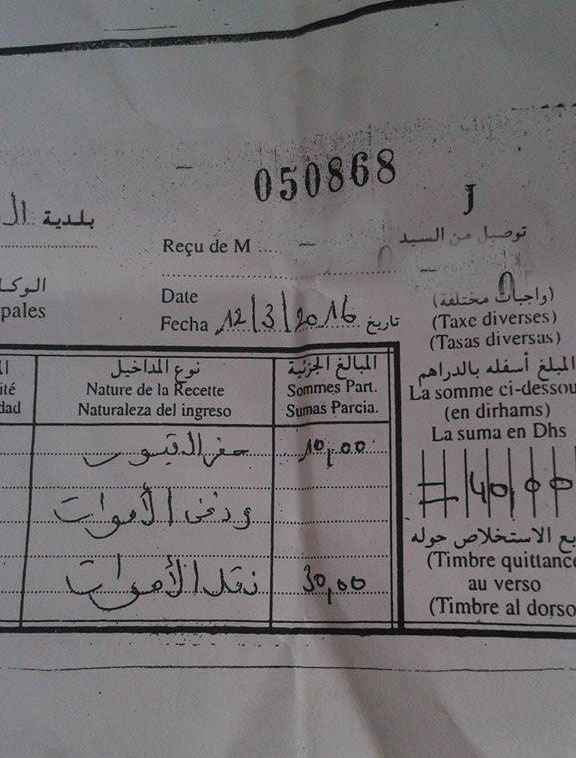 050868
J
بلدية
Reçu de M
توصيل من السيد
الوكا
pales
Date
Fecha 12/3/2016 تاريخ
(واجبات مختلفة)
(Taxe diverses)
(Tasas diversas)
ité
dad
نوع المداخيل
Nature de la Recette
Naturaleza del ingreso
المبالغ الجزئية
Sommes Part.
Sumas Parcia.
المبلغ أسفله بالدراهم
La somme ci-dessou
(en dirhams)
La suma en Dhs
حفر القبور 10,00
ودفن الأموات
نقل الأموات 30,00
# 40,00
يع الاستخلاص حوله
(Timbre quittance
au verso
(Timbre al dorso